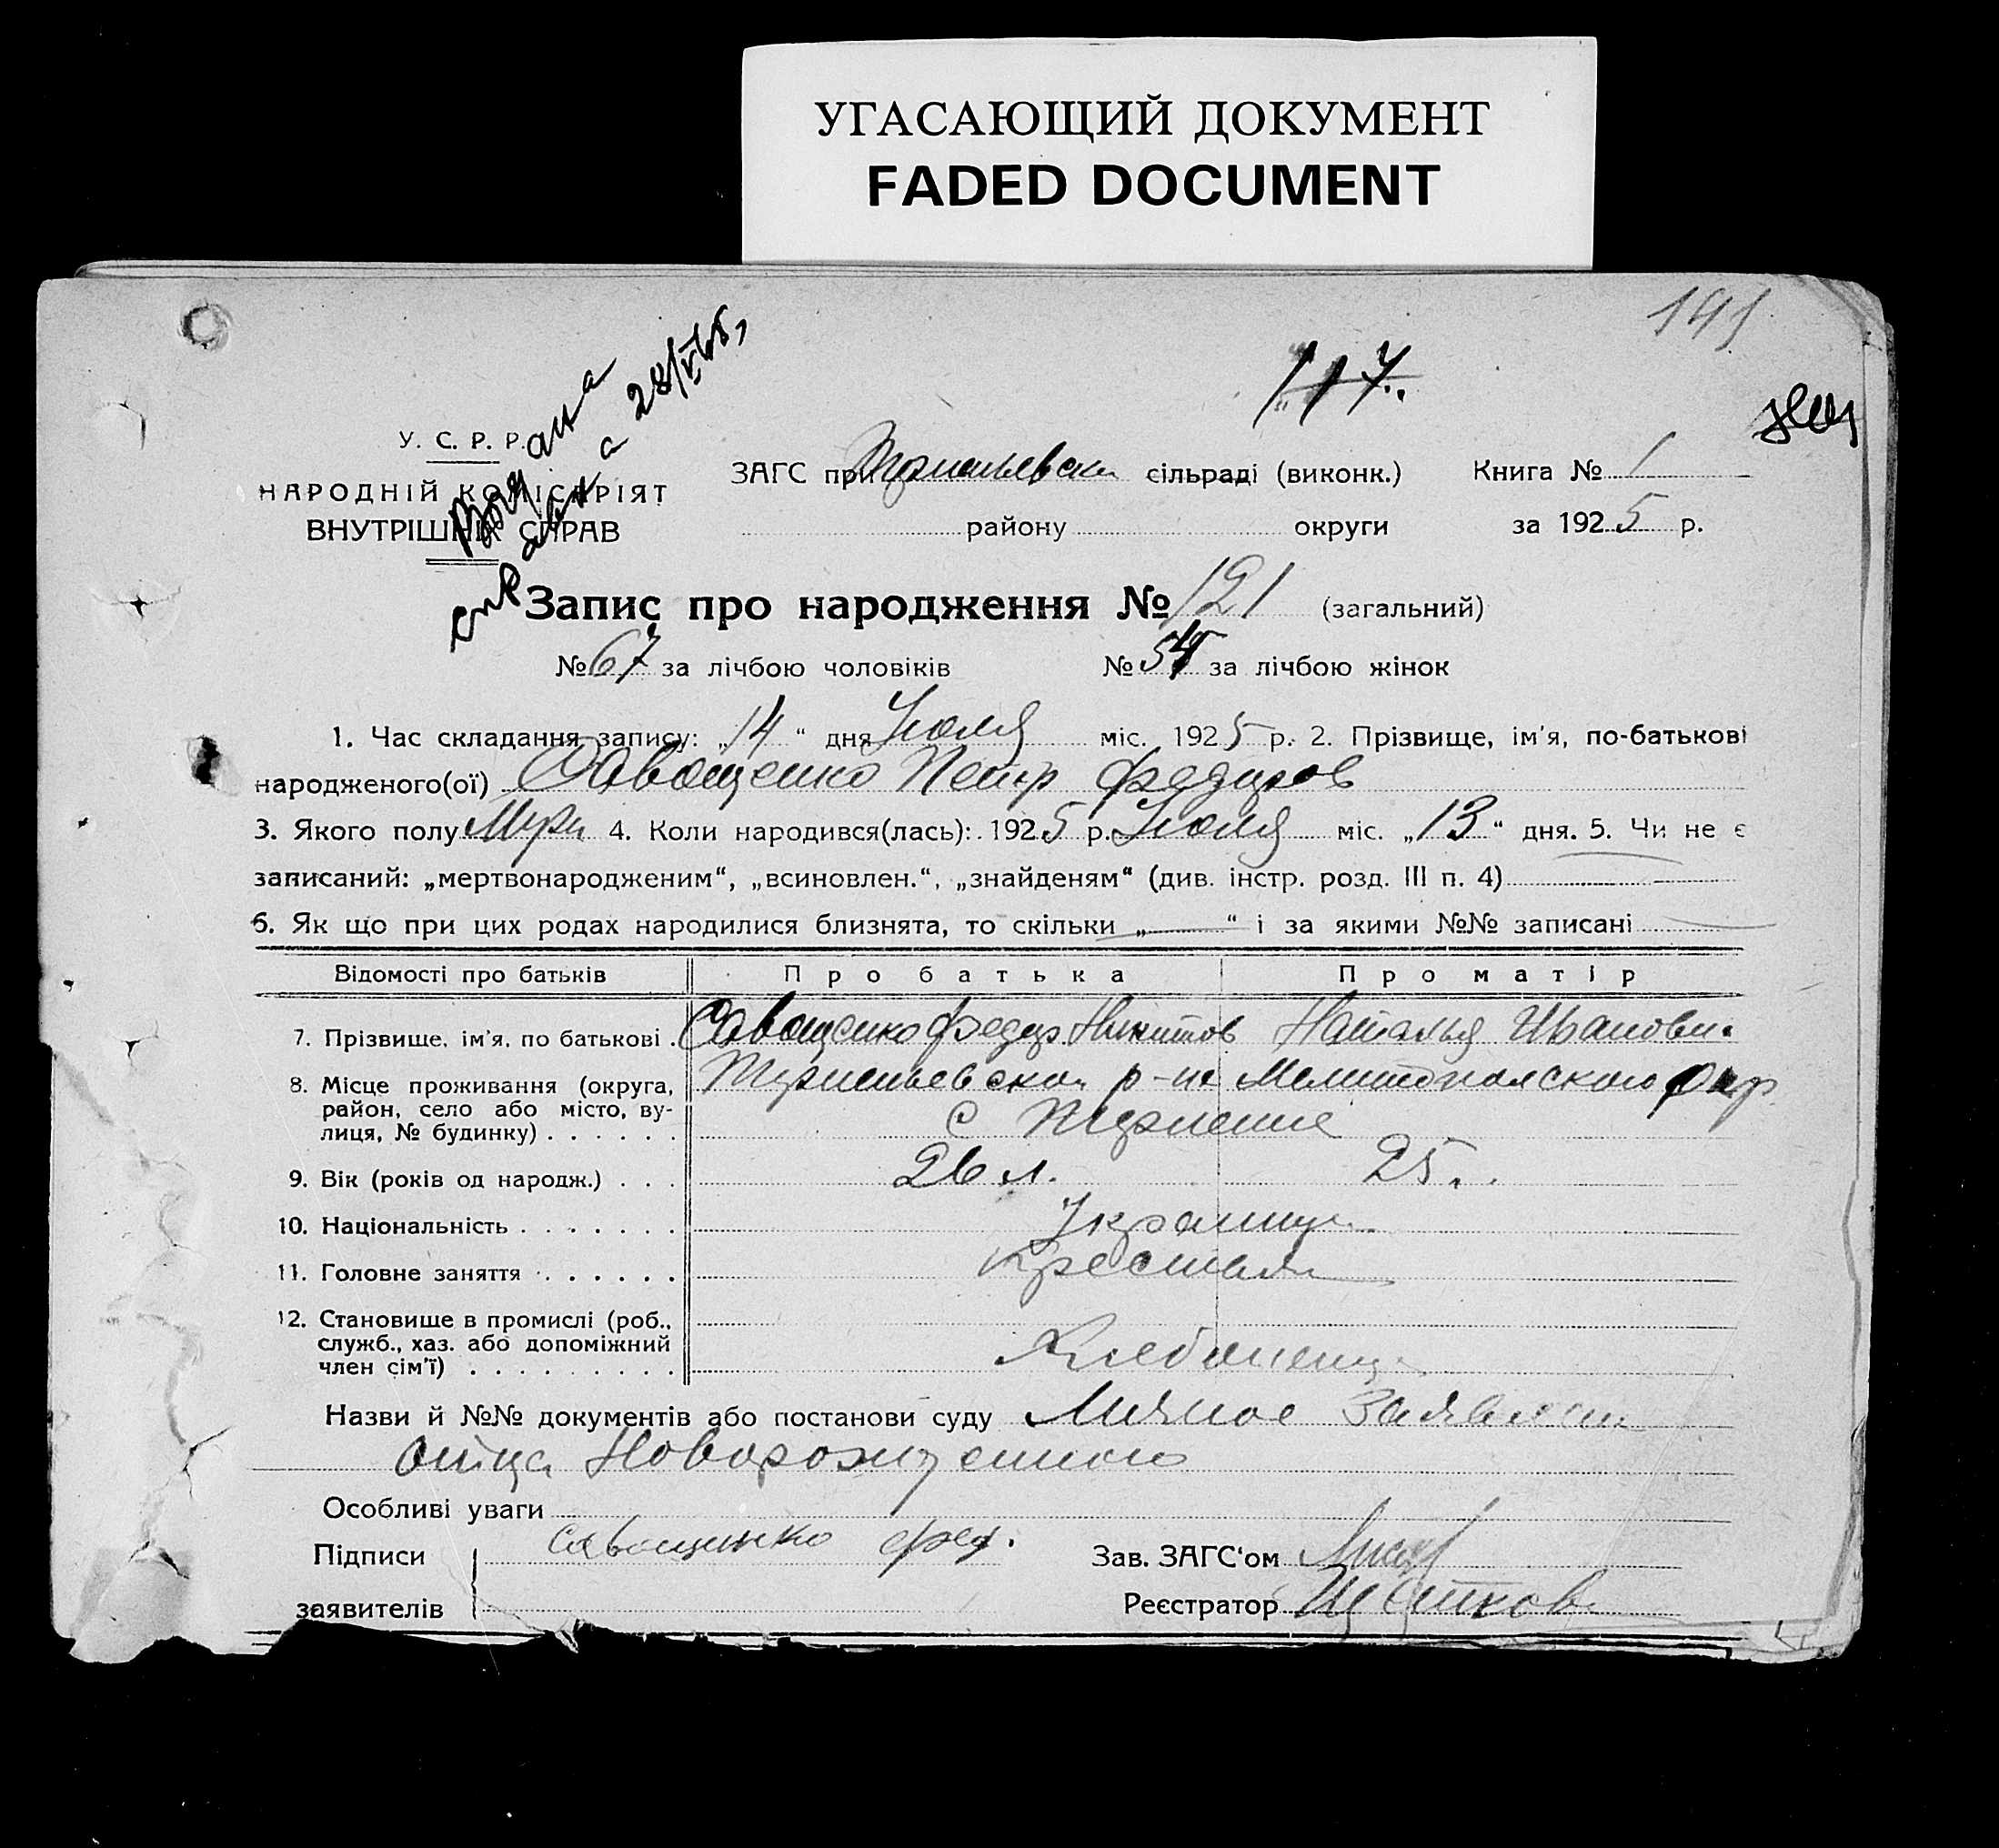 УГАСАЮЩИЙ ДОКУМЕНТ
FADED DOCUMENT
117.
Выдана
справка 28/VI
У. С. Р. Р.
НАРОДНІЙ КОМІСАРІЯТ
ВНУТРІШНІХ СПРАВ
ЗАГС при сільраді (виконк.) Книга № 1
району округи за 1925 р.
Запис про народження № 121 (загальний)
№ 67 за лічбою чоловіків № 54 за лічбою жінок
1. Час складання запису: „14“ дня Июля міс. 1925 р. 2. Прізвище, ім'я, по-батькові
народженого(ої) Саващенко Петр Федоров
3. Якого полу Муж 4. Коли народився(лась): 1925 р. Июля міс. „13“ дня. 5. Чи не є
записаний: „мертвонародженим“, „всиновлен.“, „знайденям“ (див. інстр. розд. III п. 4)
6. Як що при цих родах народилися близнята, то скільки „ “ і за якими №№ записані
Відомості про батьків Про батька Про матір
7. Прізвище, ім'я, по батькові . Саващенко Федор Никитов Наталья Иванови.
8. Місце проживання (округа, район, село або місто, вулиця, № будинку) р-на Мелитопольского Окр
с
9. Вік (років од народж.) . . . 26 л. 25.
10. Національність . . . . . . . Украинц
11. Головне заняття . . . . . . Крестьян
12. Становище в промислі (роб., служб., хаз. або допоміжний член сім'ї) . . . . . . . . . Хлебопашц
Назви й №№ документів або постанови суду Личное Заявлен
отца Новорожденного
Особливі уваги
Підписи Саващенко Фед. Зав. ЗАГС‘ом
заявителів Реєстратор Щетков